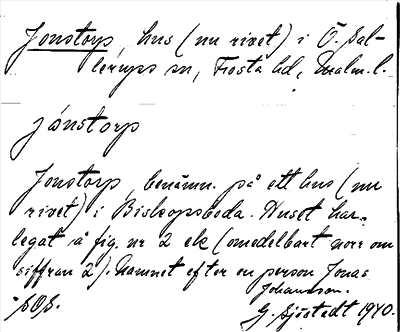 Jonstorp, hus (nu rivet) i Ö. Sal-
lerups sn, Frosta hd, Malm. l.
jónstorp
Jonstorp, benämn. på ett hus (nu
rivet) i Biskopsboda. Huset har
legat å fig. nr 2 ek (omedelbart norr om
siffran 2). Namnet efter en person Jonas
Johansson.
G. Sjöstedt 1940.